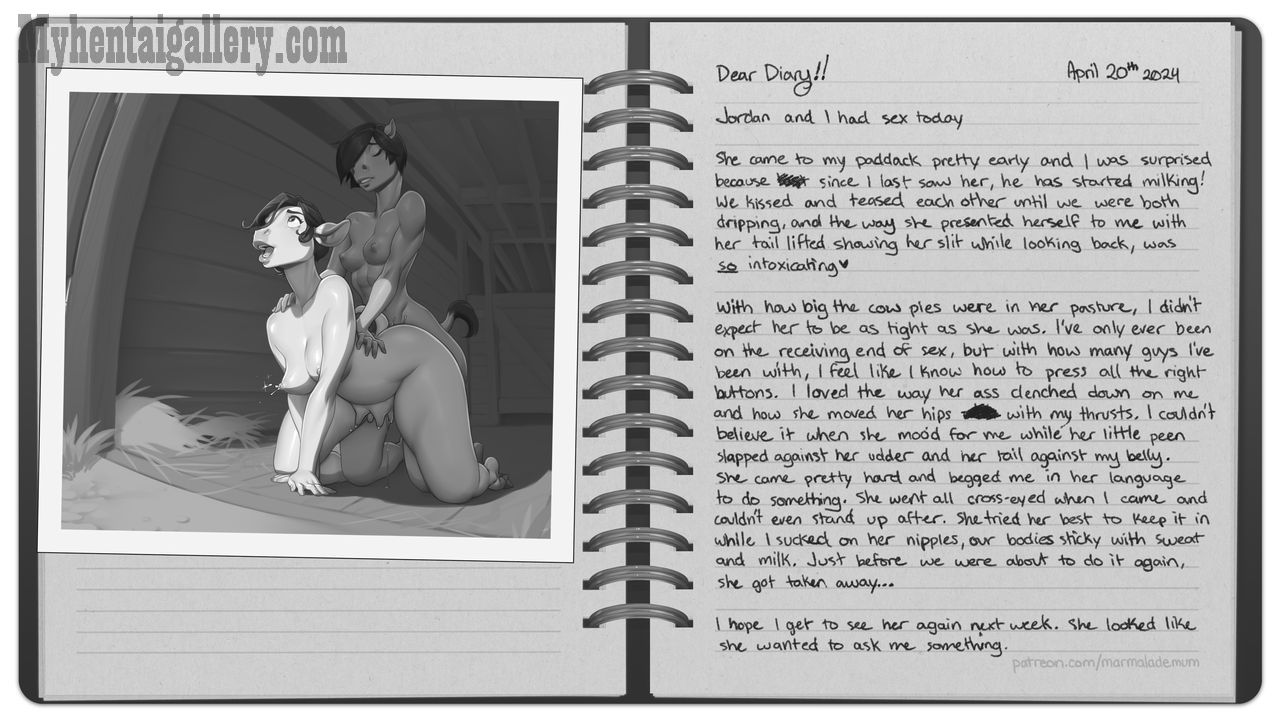 Myhentaigallery.com
Dear Diary!!
April 20th 2024
Jordan and I had sex today
She came to my paddack pretty early and I was surprised
because since I last saw her, he has started milking!
We kissed and teased each other until we were both
dripping, and the way she presented herself to me with
her tail lifted showing her slit while looking back, was
so intoxicating♥
With how big the cow pies were in her pasture, I didn't
expect her to be as tight as she was. I've only ever been
on the receiving end of sex, but with how many guys I've
been with, I feel like I know how to press all the right
buttons. I loved the way her ass clenched down on me
and how she moved her hips with my thrusts. I couldn't
believe it when she moo'd for me while her little peen
slapped against her udder and her tail against my belly.
She came pretty hard and begged me in her language
to do something. She went all cross-eyed when I came and
couldn't even stand up after. She tried her best to keep it in
while I sucked on her nipples, our bodies sticky with sweat
and milk. Just before we were about to do it again,
she got taken away...
I hope I get to see her again next week. She looked like
she wanted to ask me something.
patreon.com/marmalademum